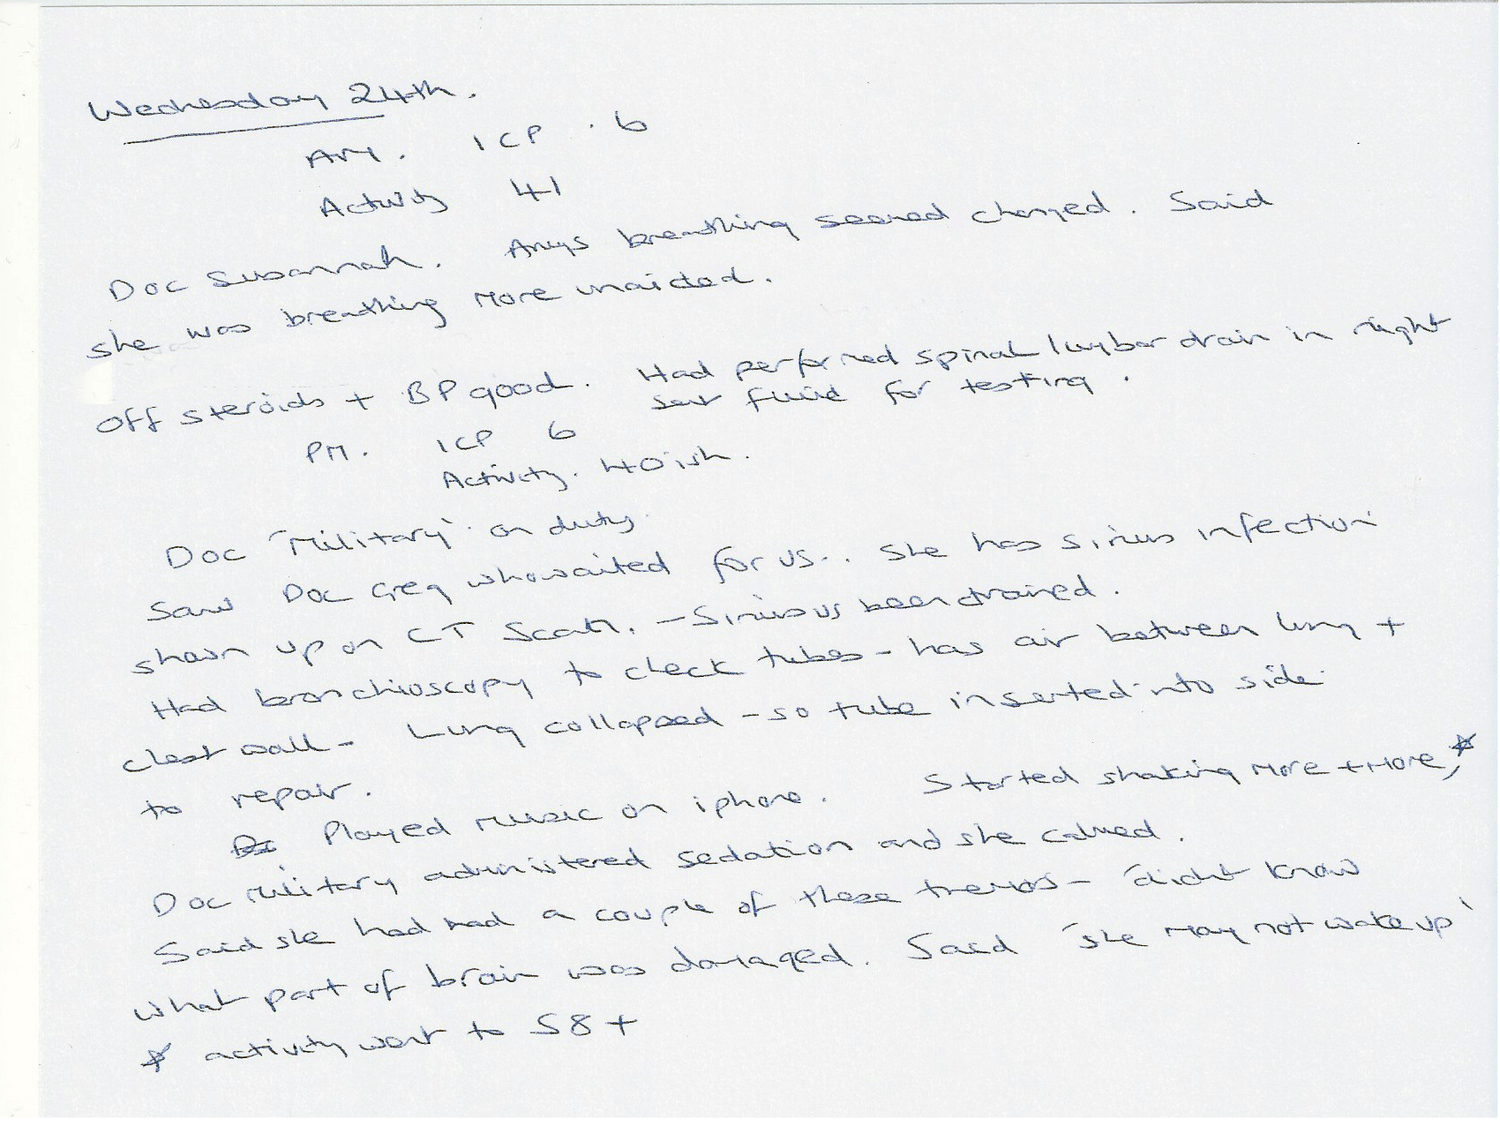 Wednesday 24th.
AM. ICP . 6
Activity 41
Doc Susannah. Amys breathing seemed changed. Said
she was breathing more unaided.
Off steroids + BP good. Had performed spinal lumbar drain in night
sent fluid for testing.
PM. ICP 6
Activity. 40ish.
Doc 'Military' on duty.
Saw Doc Greg who waited for us.. She has sinus infection
shown up on CT Scan. - Sinus been drained.
Had bronchioscopy to check tubes - has air between lung +
chest wall - Lung collapsed - so tube inserted into side
to repair.
Played music on iphone. Started shaking more + more, *
Doc military administered sedation and she calmed.
Said she had had a couple of these tremors - 'didnt know
what part of brain was damaged. Said 'she may not wake up'
* activity went to 58 +